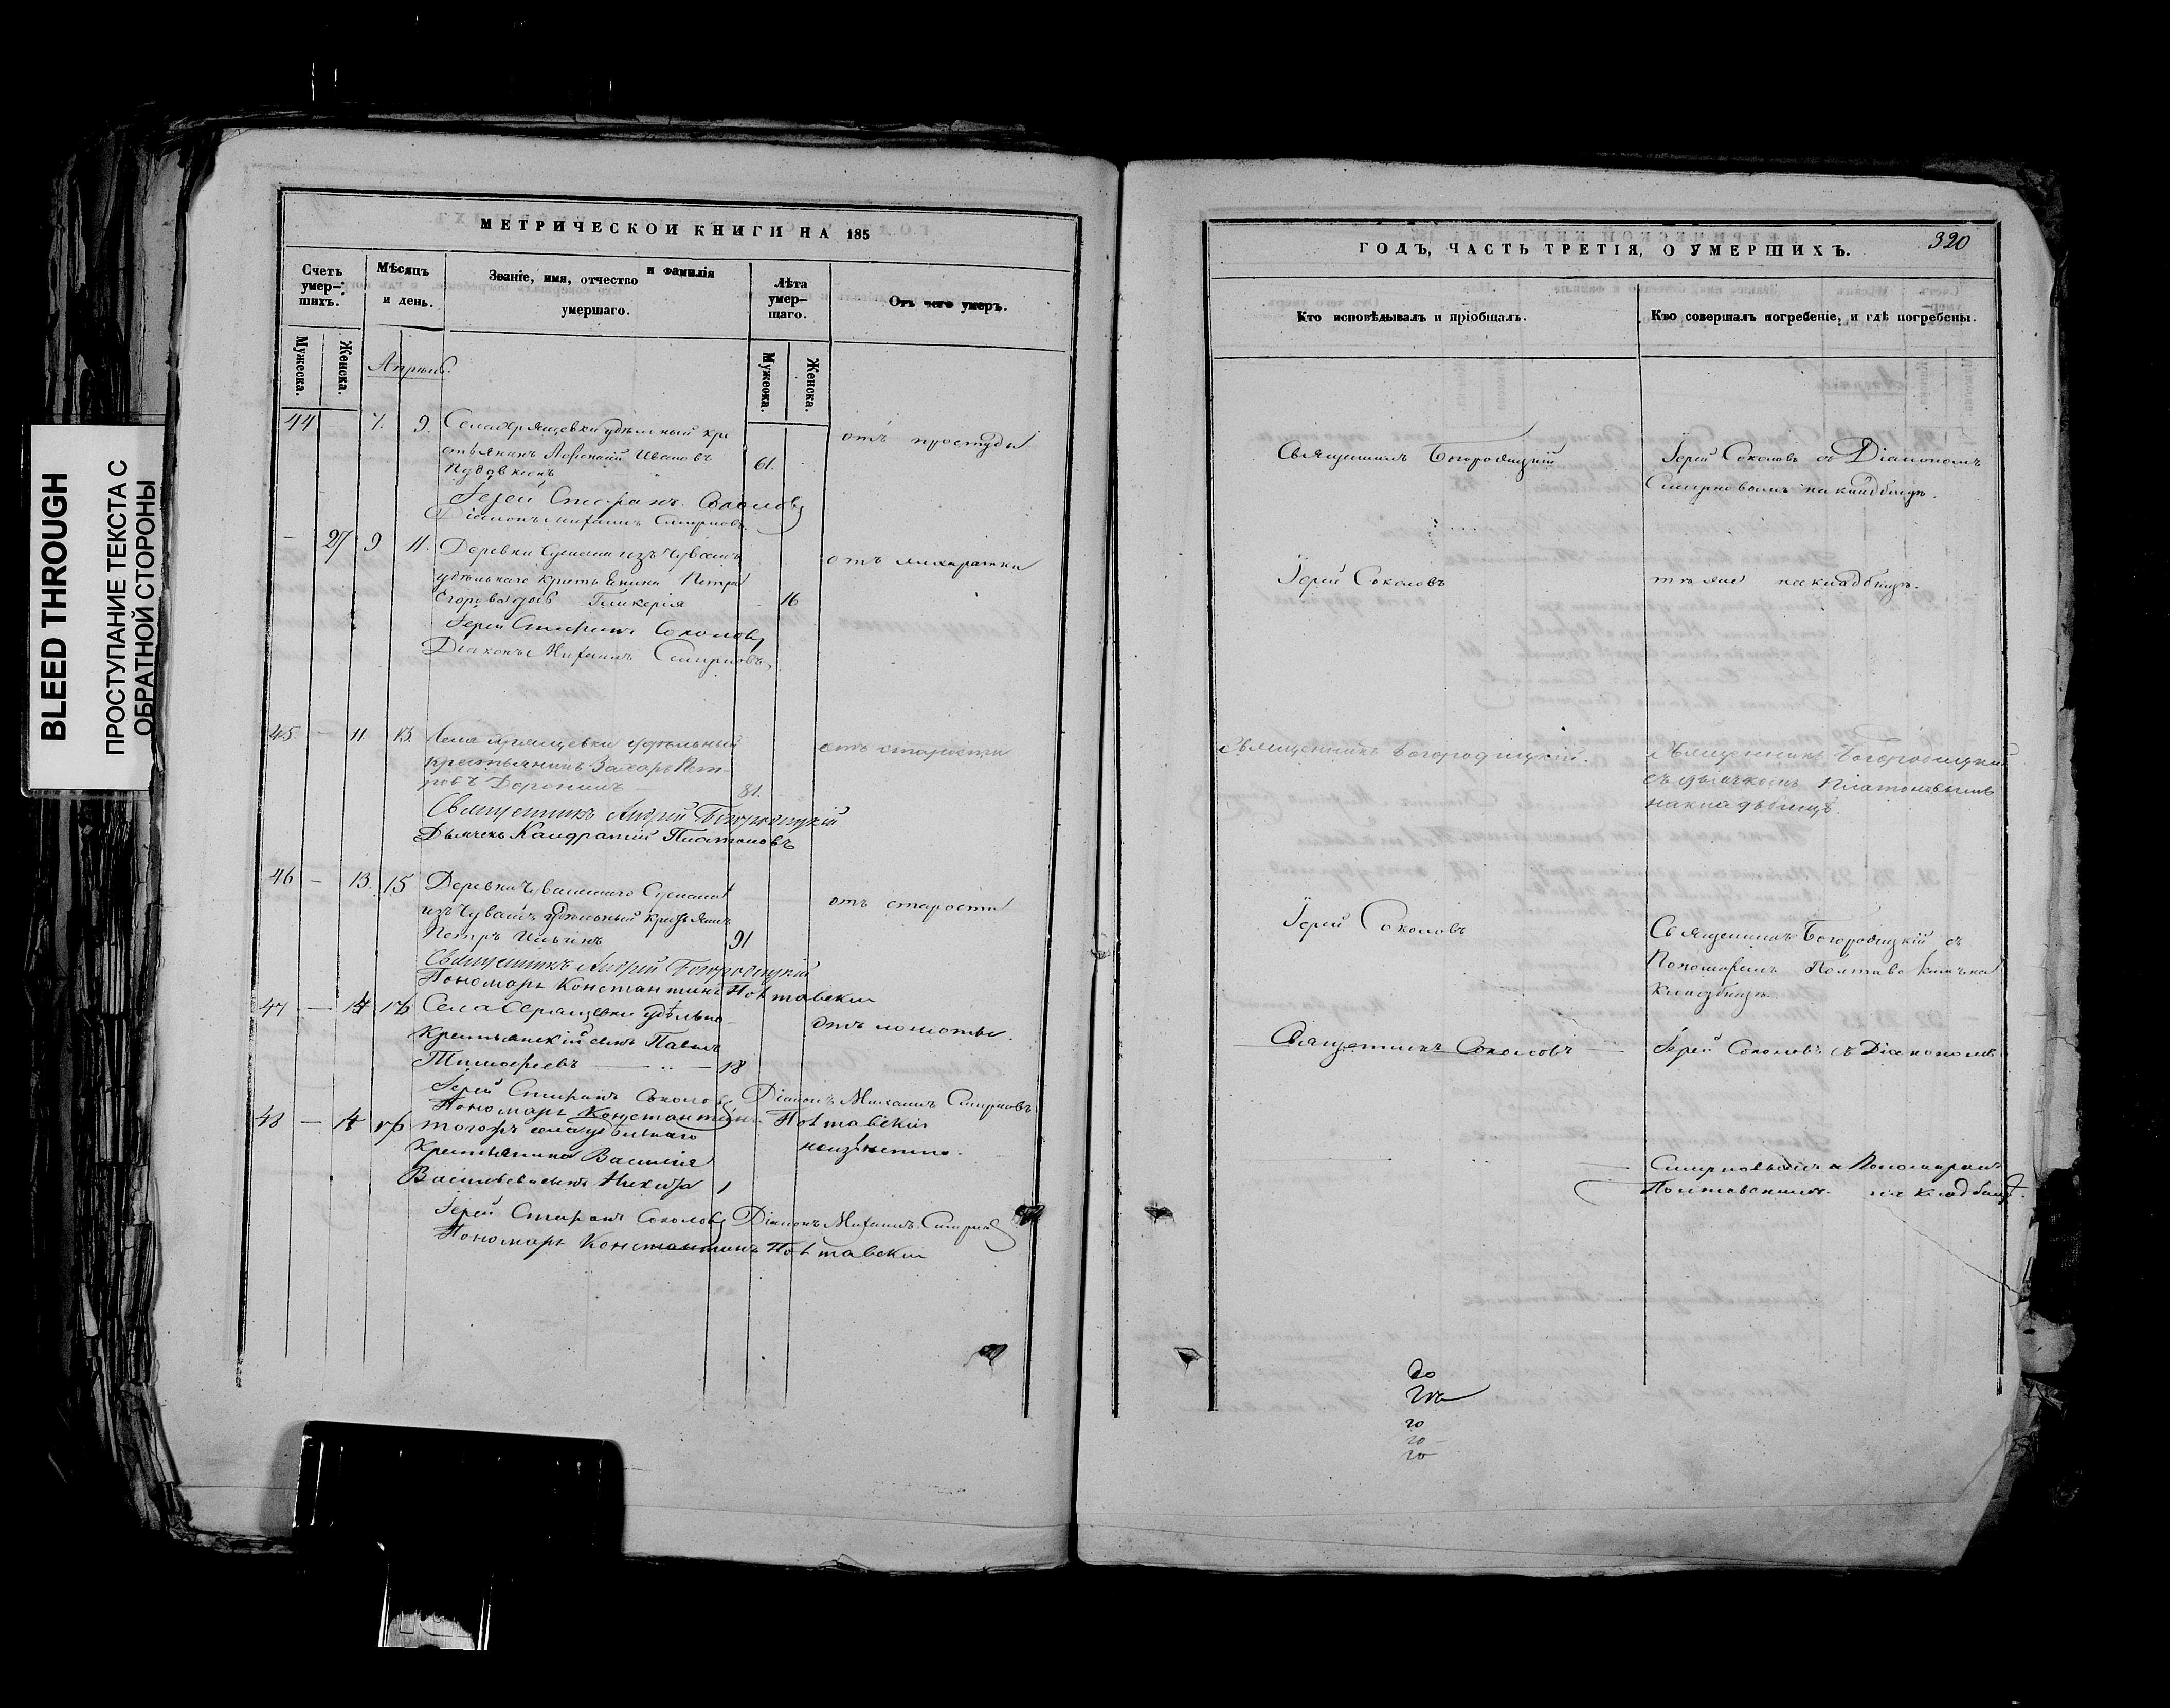 BLEED THROUGH
ПРОСТУПАНИЕ ТЕКСТА С
ОБРАТНОЙ СТОРОНЫ
МЕТРИЧЕСКОЙ КНИГИ НА 185
Счетъ умер-шихъ.
Мѣсяцъ и день.
Званіе, имя, отчество и фамилія умершаго.
Лѣта умер-щаго.
Отъ чего умеръ.
Мужеска.
Женска.
Мужеска.
Женска.
Апрѣль.
44 7. 9. удѣльный кре
стьянинъ Иванов 61. отъ простуды
Іерей Стефанъ Соколовъ
Діаконъ Михаилъ Смирновъ
- 27 9 11. Деревни изъ Чувашъ отъ лихаратки
удѣльнаго крестьянина Петра
Егорова дочь Гликерія 16
Іерей Стефанъ Соколовъ
Діаконъ Михаилъ Смирновъ
45 - 11 13. Села удѣльный отъ старости
крестьянинъ Захаръ Пет-
ровъ Доронинъ 81.
Священникъ Андрей Богородицкій
Дьячекъ Кандратій Платоновъ
46 - 13. 15 Деревни отъ старости
изъ Чувашъ удѣльный крестьянинъ
Петръ Ильинъ 91
Священникъ Андрей Богородицкій
Пономарь Константинъ Полтавскій
47 - 14 16 Села удѣльно
крестьянскій сынъ Павелъ
Тимофеевъ 18
Іерей Стефанъ Соколовъ Діаконъ Михаилъ Смирновъ
Пономарь Константинъ Полтавскій
48 - 14 16 тогожъ села удѣльнаго
крестьянина Василія неизвѣстно.
Васильева сынъ Никита 1
Іерей Стефанъ Соколовъ Діаконъ Михаилъ Смирновъ
Пономарь Константинъ Полтавскій
ГОДЪ, ЧАСТЬ ТРЕТІЯ, О УМЕРШИХЪ.
320
Кто исповѣдывалъ и пріобщалъ.
Кто совершалъ погребеніе, и гдѣ погребены.
Священникъ Богородицкій
Іерей Соколовъ съ Діакономъ
Смирновымъ на кладбищѣ.
Іерей Соколовъ
тѣ же на кладбищѣ.
Священникъ Богородицкій.
Священникъ Богородицкій
съ дьячкомъ Платоновымъ
на кладбищѣ.
Іерей Соколовъ
Священникъ Богородицкій съ
Пономаремъ Полтавскимъ на
кладбищѣ.
Священникъ Соколовъ
Іерей Соколовъ съ Діакономъ
Смирновымъ и Пономаремъ
Полтавскимъ на кладбищѣ.
го
го
го